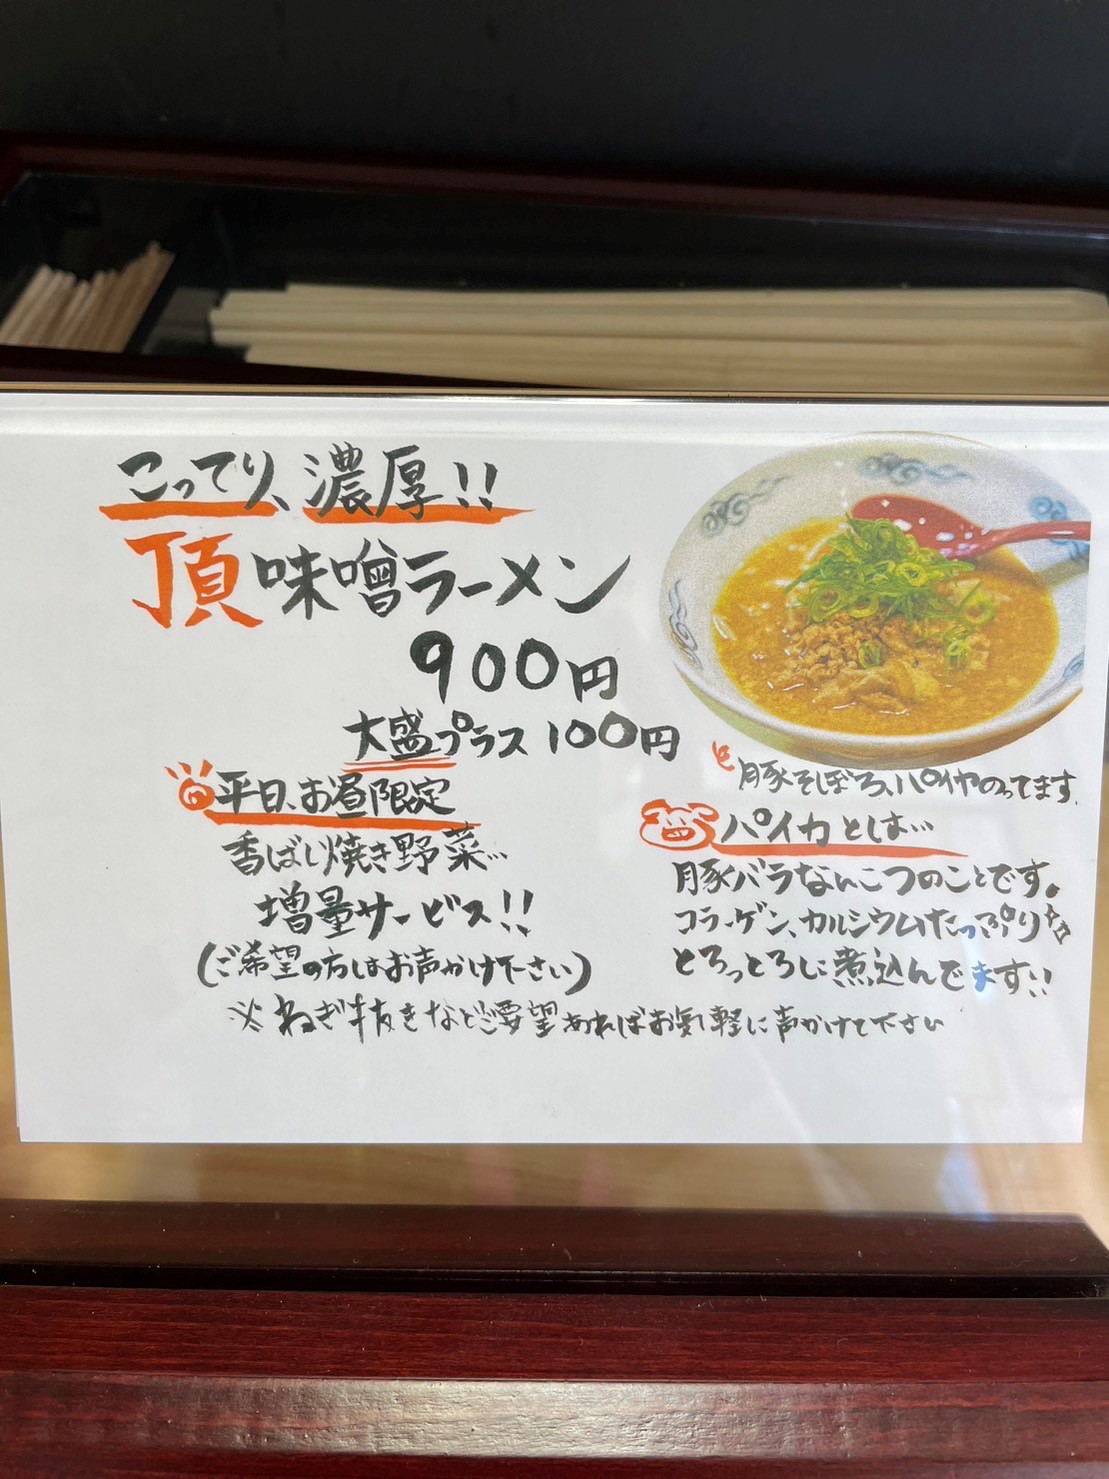 こってり、濃厚!!
頂味噌ラーメン
900円
大盛プラス100円
平日、お昼限定
香ばし焼き野菜…
増量サービス!!
(ご希望の方はお声かけ下さい)
豚そぼろ、パイカのってます。
パイカとは…
豚バラなんこつのことです。
コラーゲン、カルシウムたっぷり
とろっとろに煮込んでます!!
※ねぎ抜きなどご要望あればお気軽に声かけて下さい